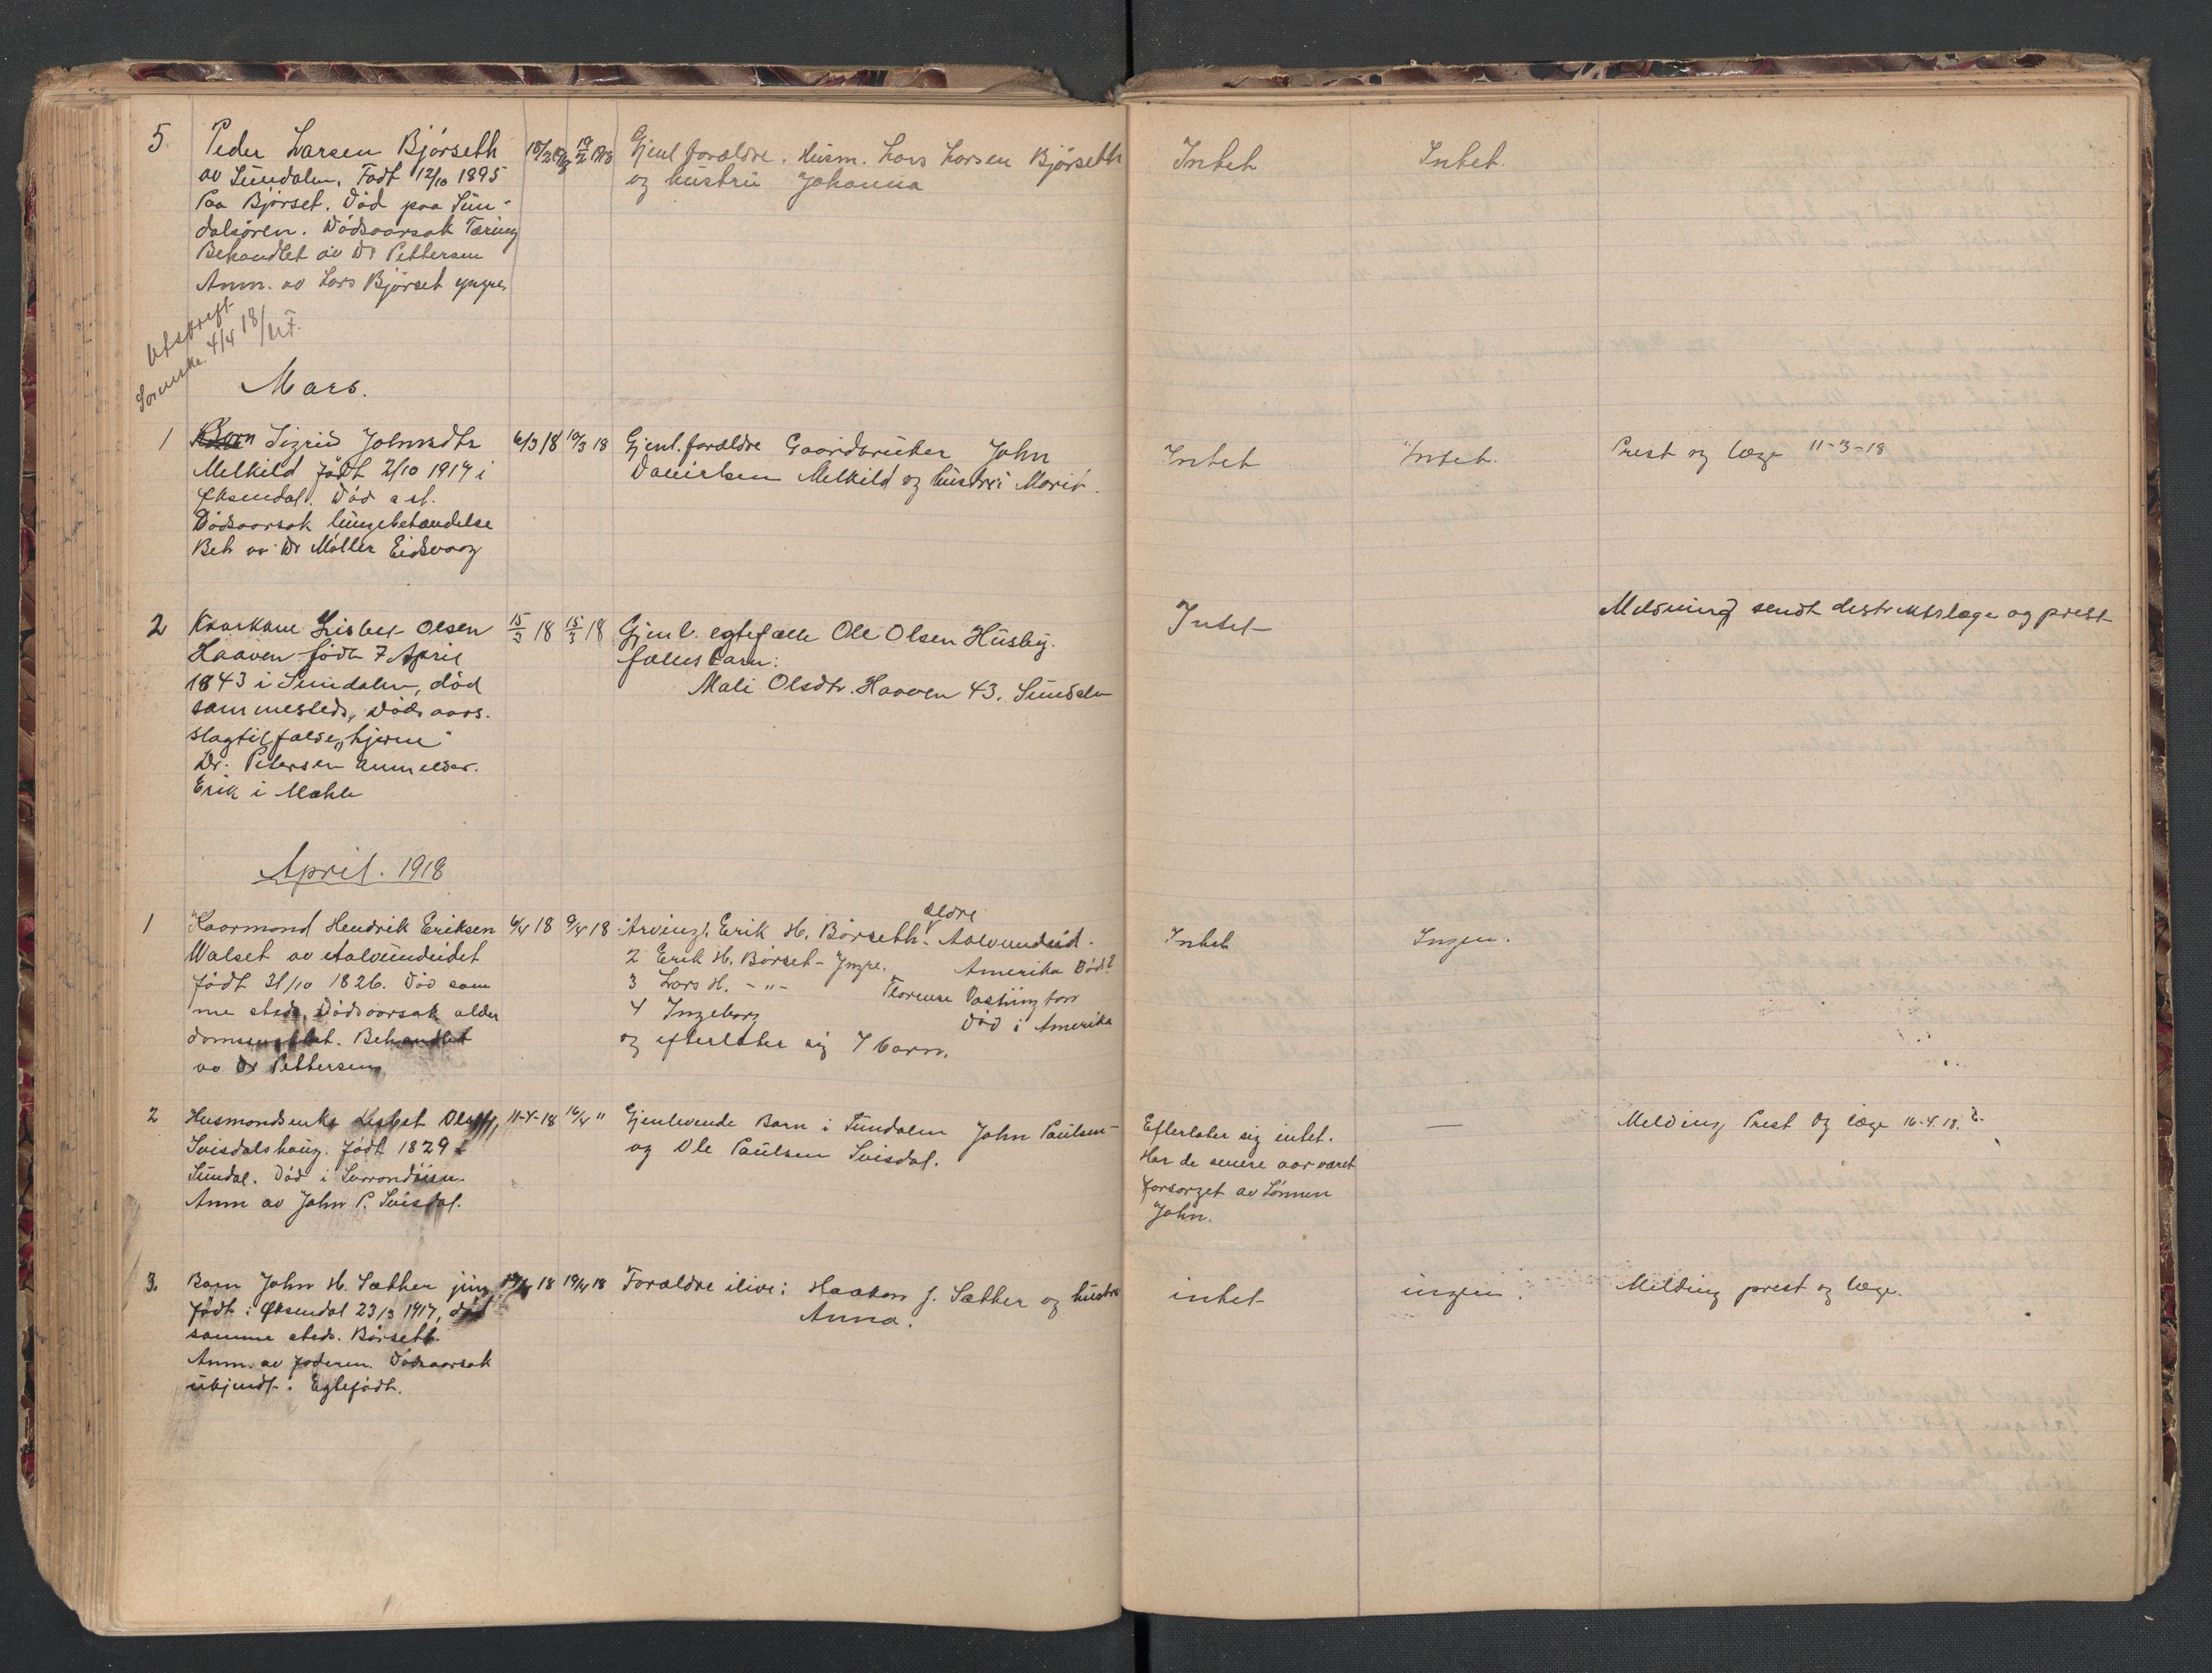 5 Peder Larsen Bjørseth 18/2 19/2 1918 Gjenl forældre. Husm. Lars Larsen Bjørseth Intet Intet.
av Sundalen. Født 12/10 1895 og hustru Johanna
Paa Bjørset. Død paa Sun-
dalsøren. Dødsaarsak Tæring
Behandlet av Dr Pettersen
Anm. av Lars Bjørset yngre
Utskrift
Sorenskr. 4/4 18/
Mars.
1 Barn Sigrid Johnsdtr 6/3 18 10/3 18 Gjenl. forældre Gaardbruker John Intet Intet. Prest og læge 11-3-18
Melkild født 2/10 1917 i Danielsen Melkild og hustru Marit.
Øksendal. Død a st.
Dødsaarsak lungebetændelse
Beh av Dr Møller Eidsvaag
2 Kaarkone Lisbet Olsen 15/3 18 15/3 18 Gjenl. egtefælle Ole Olsen Husby. Intet Meldning sendt distriktslæge og prest
Haaven født 7 April fælles barn:
1843 i Sundalen, død Mali Olsdtr. Haaven 43. Sundalen
sammesteds, Dødsaars.
slagtilfælde „hjerne"
Dr. Petersen Anmelder.
Erik i Mæhle
April. 1918
1 Kaarmand Hendrik Eriksen 6/4 18 9/4 18 Arvingl. Erik H. Børseth- ældre Aalvundeid. Intet Ingen.
Walset av Aalvundeidet 2 Erik H. Børset- Yngre. Amerika Død?
født 31/10 1826. Død sam 3 Lars H. -"- Florence Vashington
me steds, Dødsaarsak alder 4 Ingeborg Død i Amerika
domssvakhet. Behandlet og efterlater sig 7 barn.
av Dr Pettersen
2 Husmandsenke Lisbet 11-4-18 16/4 " Gjenlevende Barn i Sundalen John Paulsen Efterlater sig intet. — Melding Prest Og læge 16-4.18.
Svisdalshaug. født 1829 og Ole Paulsen Svisdal. Har de senere aar været
Sundal. Død i forsørget av Sønnen
Anm av John P. Svisdal. John.
3. Barn John H. Sæther jun. 18 19/4 18 Forældre ilive: Haakon J. Sæther og hustru intet ingen. Melding prest og læge.
født i Øksendal 23/3 1917, død Anna.
samme steds. Børseth.
Anm. av faderen. Dødsaarsak
ukjendt. Egtefødt.